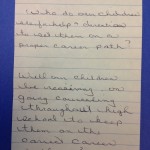 "Who do our children
seek help + direction
to set them on a
proper career path?
Will our children
be receiving
going counseling
throughout high
school to keep
them on the
career